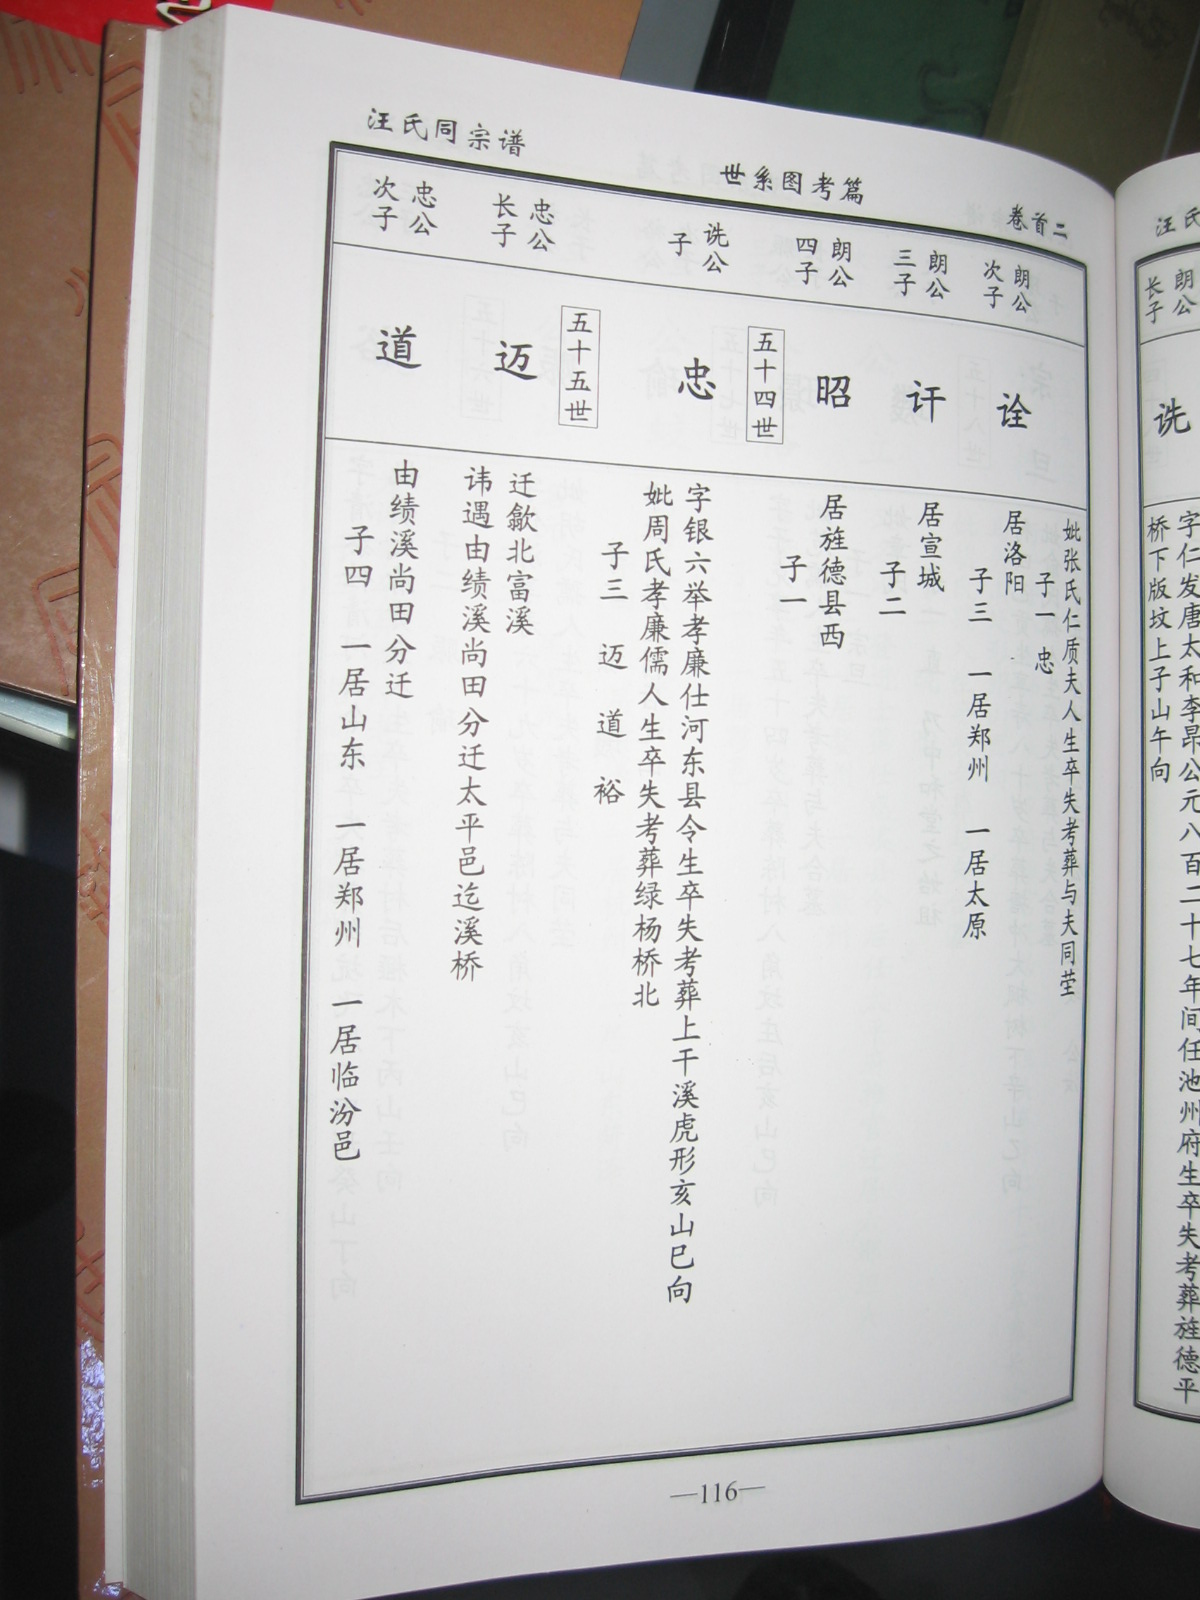 汪氏同宗谱
世系图考篇
卷首二
妣张氏仁质夫人生卒失考葬与夫同茔
子一 忠
朗公
次子
诠
居洛阳
子三 一居郑州 一居太原
朗公
三子
讦
居宣城
子二
朗公
四子
昭
居旌德县西
子一
五十四世
诜公
子
忠
字银六举孝廉仕河东县令生卒失考葬上干溪虎形亥山巳向
妣周氏孝廉儒人生卒失考葬绿杨桥北
子三 迈 道 裕
五十五世
忠公
长子
迈
迁歙北富溪
讳遇由绩溪尚田分迁太平邑迄溪桥
忠公
次子
道
由绩溪尚田分迁
子四 一居山东 一居郑州 一居临汾邑
—116—
汪氏
朗公
长子
诜
字仁发唐太和李昂公元八百二十七年间任池州府生卒失考葬旌德平
桥下版坟上子山午向